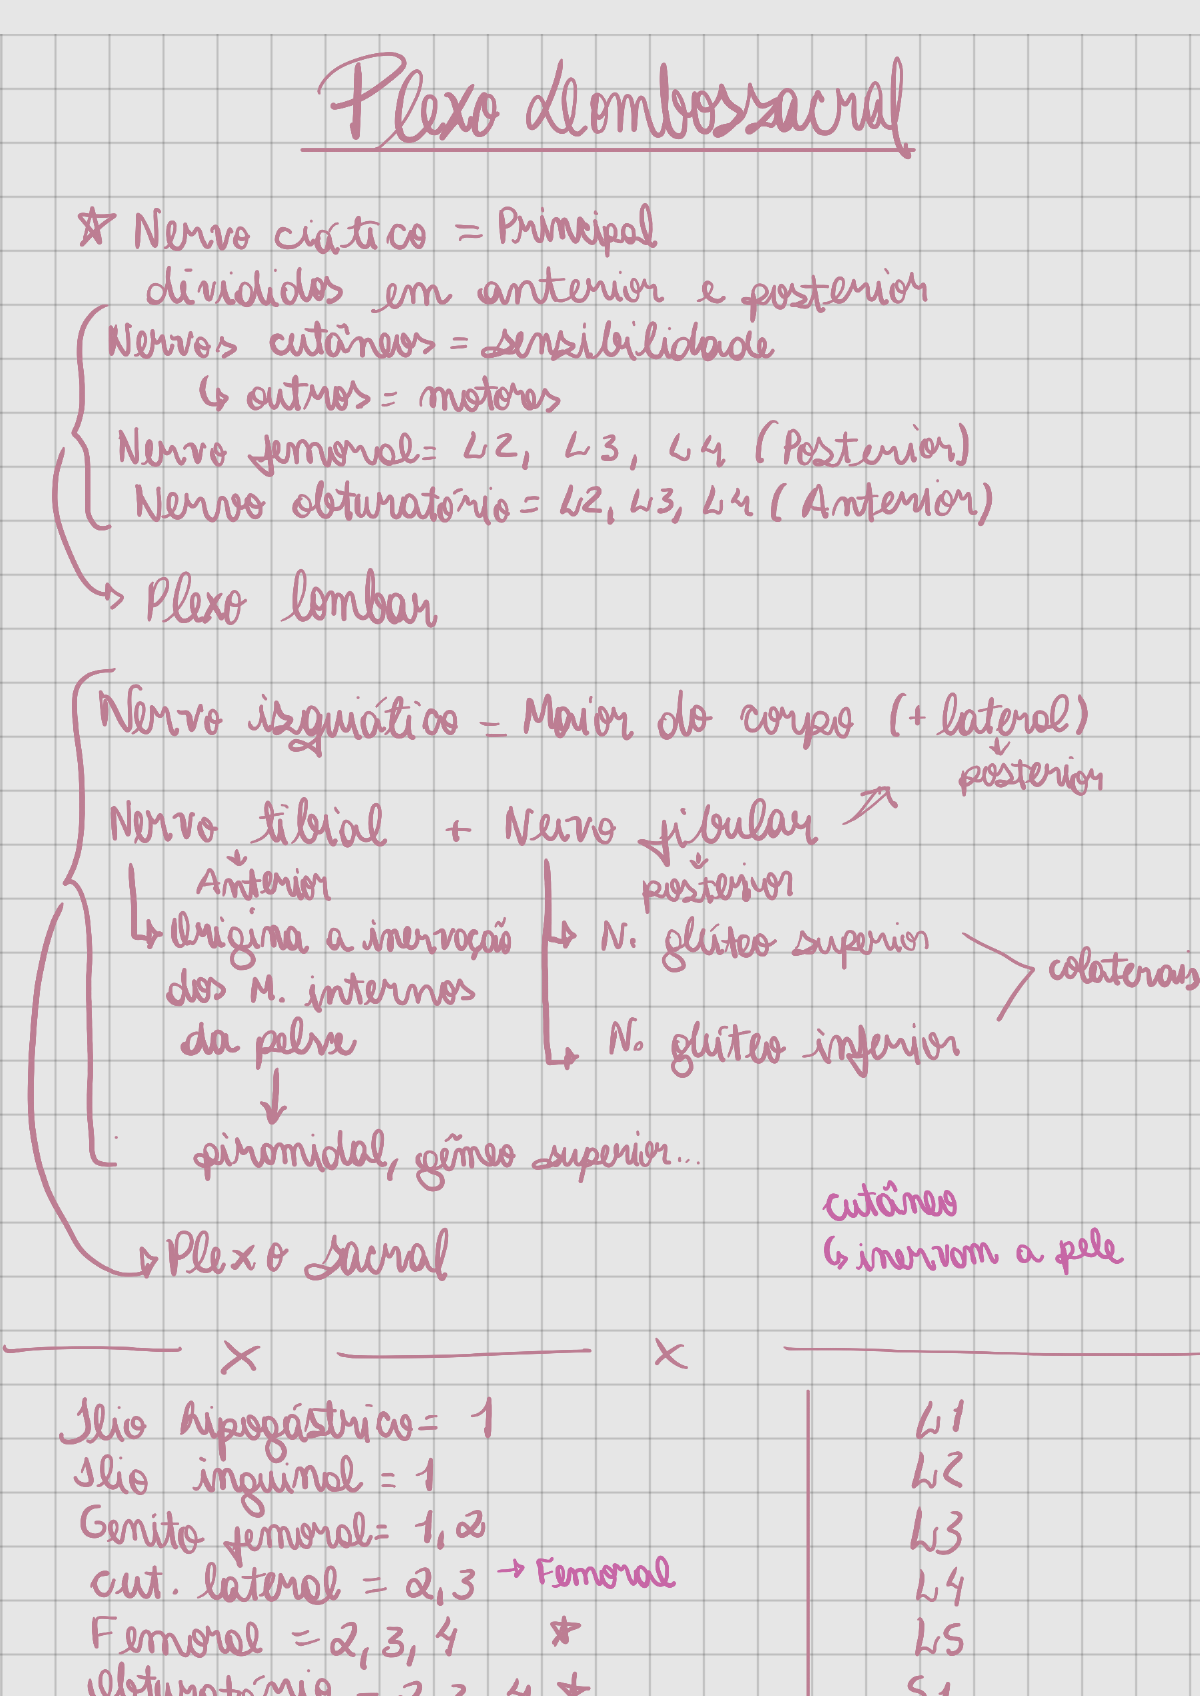 Plexo Lombossacral
☆ Nervo ciático = Principal
divididos em anterior e posterior
Nervos cutâneos = sensibilidade
↳ outros = motores
Nervo femoral = L2, L3, L4 (Posterior)
Nervo obturatório = L2, L3, L4 (Anterior)
→ Plexo lombar
Nervo isquiático = Maior do corpo (+ lateral)
↓
posterior
Nervo tibial + Nervo fibular ↗
↓ ↓
Anterior posterior
↳ Origina a inervação ↳ N. glúteo superior
colaterais
dos M. internos
da pelve ↳ N. glúteo inferior
↓
piramidal, gêmeo superior...
cutâneo
→ Plexo sacral ↳ inervam a pele
x x
Ilio hipogástrico = 1 L1
Ilio inguinal = 1 L2
Genito femoral = 1, 2 L3
cut. lateral = 2, 3 → Femoral L4
Femoral = 2, 3, 4 ☆ L5
Obturatório = 2 3 4 ☆ S1